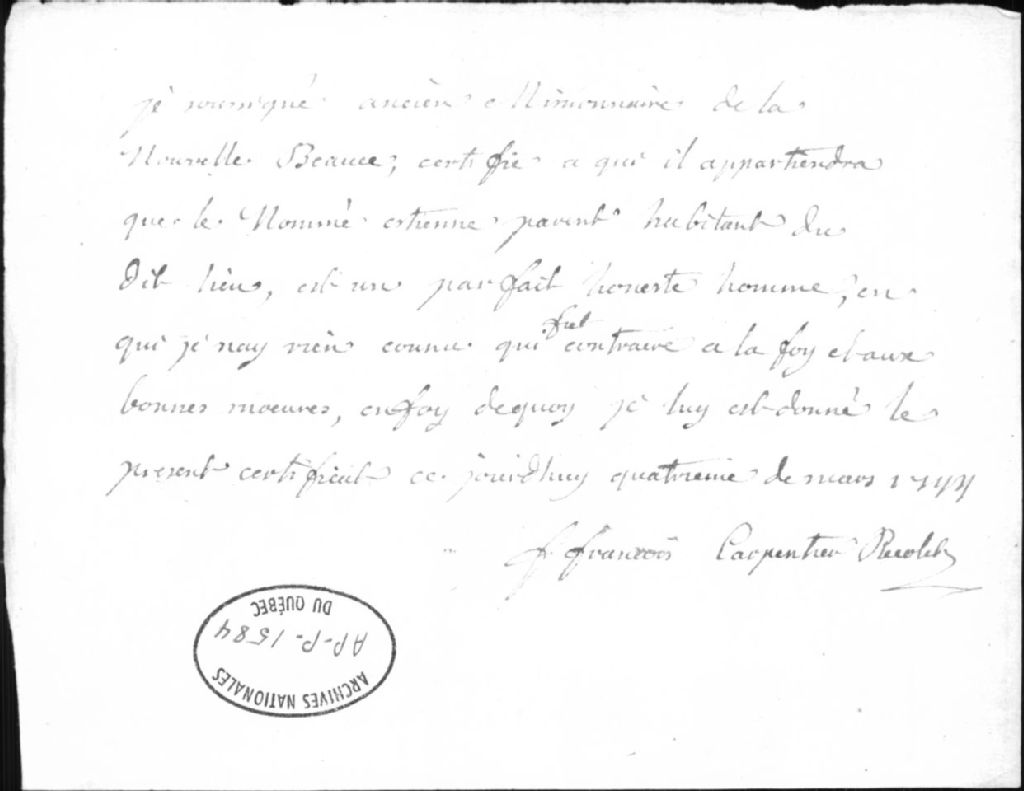 je soussigné ancien Missionnaire de la
Nouvelle Beauce, certifie a qui il appartiendra
que le Nommé estienne parent habitant du
dit lieu, est un parfait honeste homme, en
qui je nay rien connu qui fut contraire a la foy et aux
bonnes moeures, en foy dequoy je luy est donné le
present certificat ce jourdhuy quatrieme de mars 1744
f. françois Carpentier Recolet
ARCHIVES NATIONALES
AP-P-1584
DU QUÉBEC